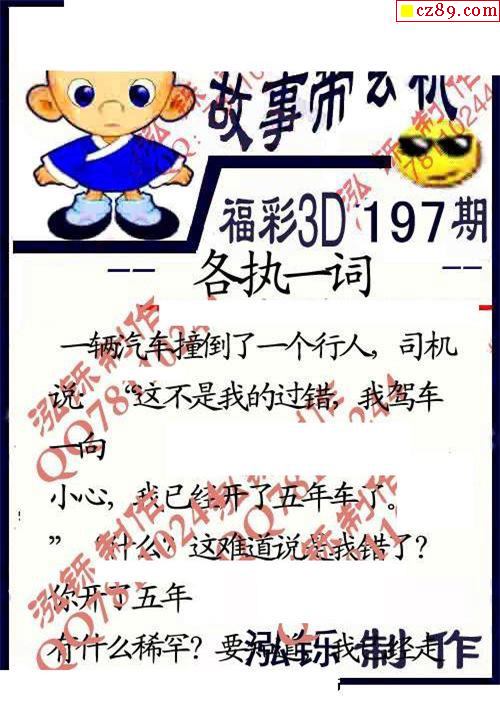 cz89.com
故事带玄机
福彩3D 197期
各执一词
一辆汽车撞倒了一个行人，司机
说：“这不是我的过错，我驾车
一向
小心，我已经开了五年车了。
”“什么？这难道说是我错了？
你开了五年
有什么稀罕？要
我
走
泓铄 制作
泓铄 制作